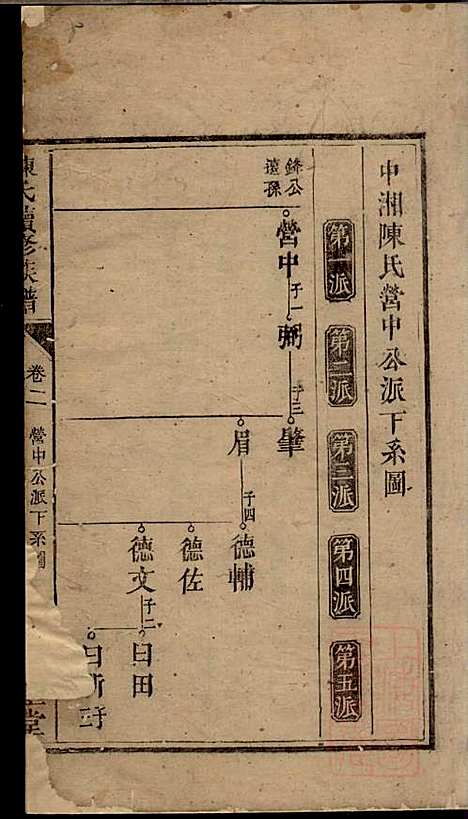 中湘陳氏營中公派下系圖
第一派
第二派
第三派
第四派
第五派
鋒公遠孫
營中
子一
弼
子三
肇
眉
子四
德輔
德佐
德文
子二
曰田
曰新
子三
陳氏續修族譜
卷二
營中公派下系圖
堂